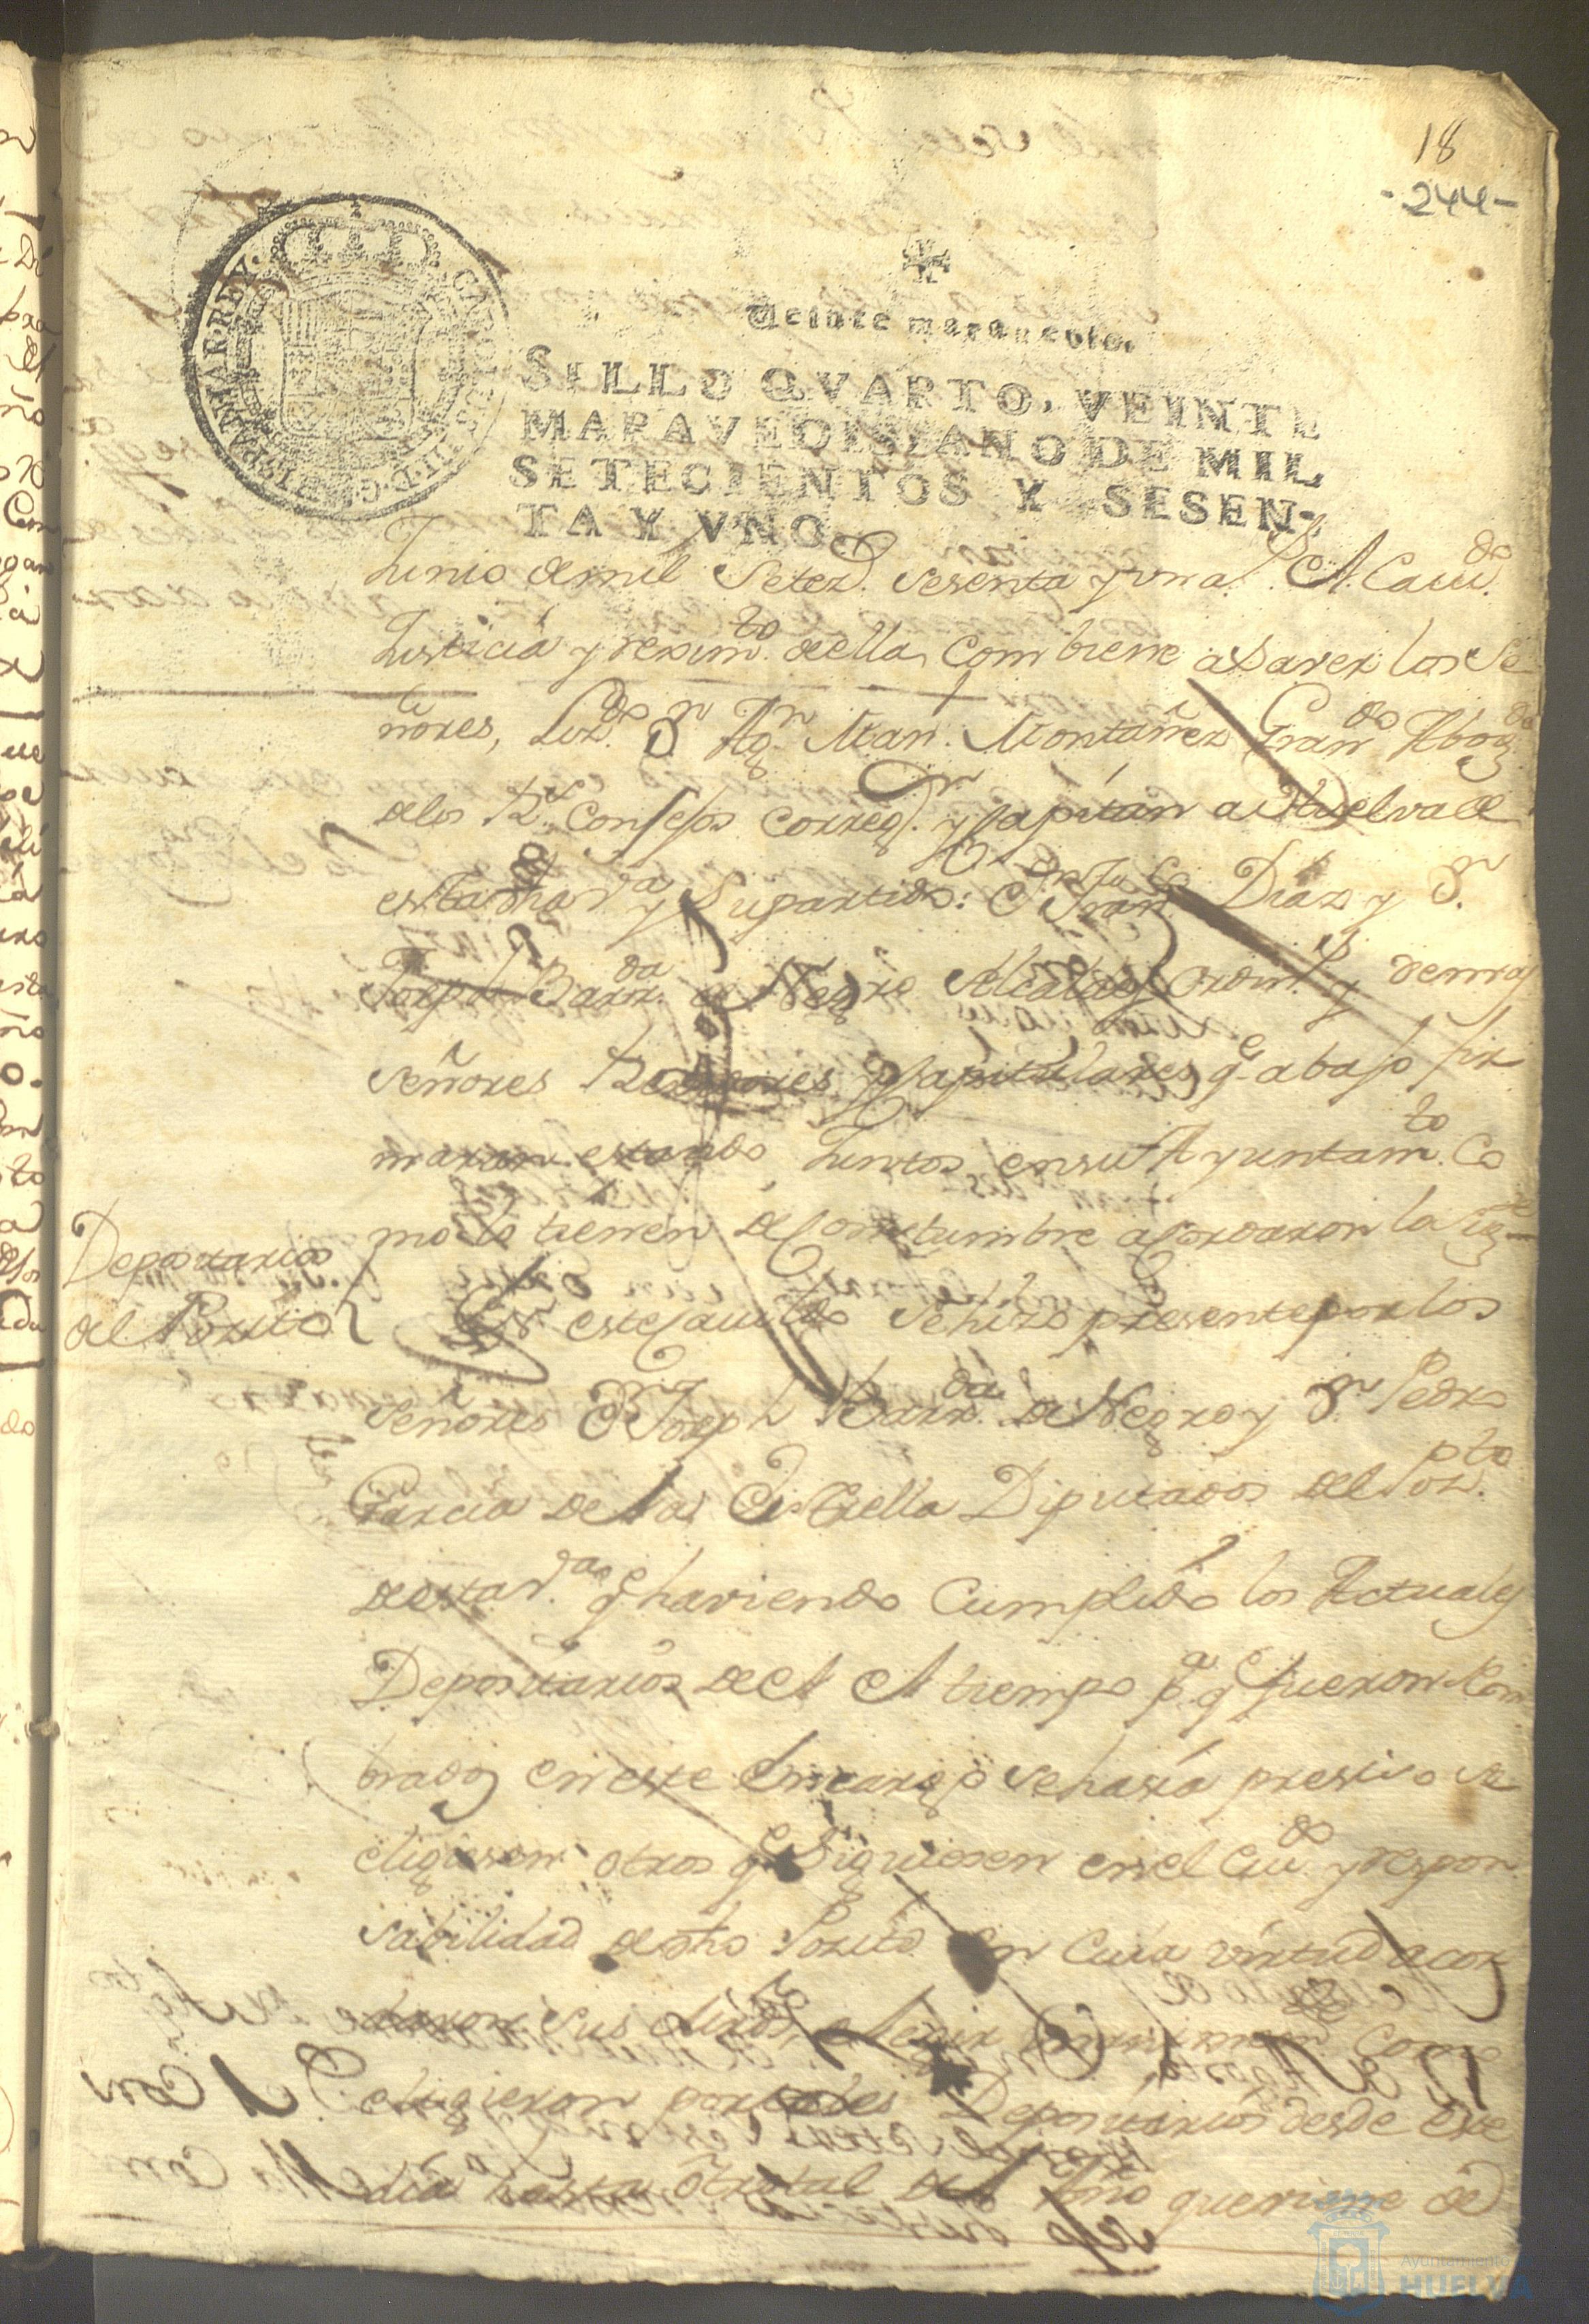 18
-244-
CAROLUS III D. G. HISPANIAR REX
Veinte maravedis.
SELLO QVARTO, VEINTE
MARAVEDIS, AÑO DE MIL
SETECIENTOS Y SESEN-
TA Y VNO.
Junio de mil Setez.s sesenta y uno a.s El Cauil.do
Justicia y reximto. de ella, Combiene a Saver los Se
ñores, Lizdo. Dn. Agn. Man.l Montañez Grando. Abogdo
de los Rs. Consejos correg.r y Capitan a Guelva de
esta dha V.a y Su partido: Dn. Juan Diaz y Dn.
Joseph Barrda. de Negro Alcaldes ordins. y demas
Señores Rexidores y Capitulares q.e abajo fir
maran estando Juntos en su Ayuntamto. Co
mo lo tienen de Constumbre acordaron la sigte
Depositarios
del Posito
En este Cauildo se hizo presente por los
Señores Dn. Joseph Barrda. de Negro y Dn. Pedro
Garcia de la Estrella Diputados del Pozto.
de esta V.a q.e haviendo Cumplido los Actuales
Depositarios de el el tiempo p.a q.e fueron Nom
brados en este Encargo se hasia presiso se
eligiesen otros q.e Siguiesen en el Cuido. y respon
sabilidad de dho Posito En Cuia virtud acor
daron sus mrds. elejir Como
eligieron por tales Depositarios desde este
dia hasta otro tal del Año que viene de
Ayuntamiento de
HUELVA